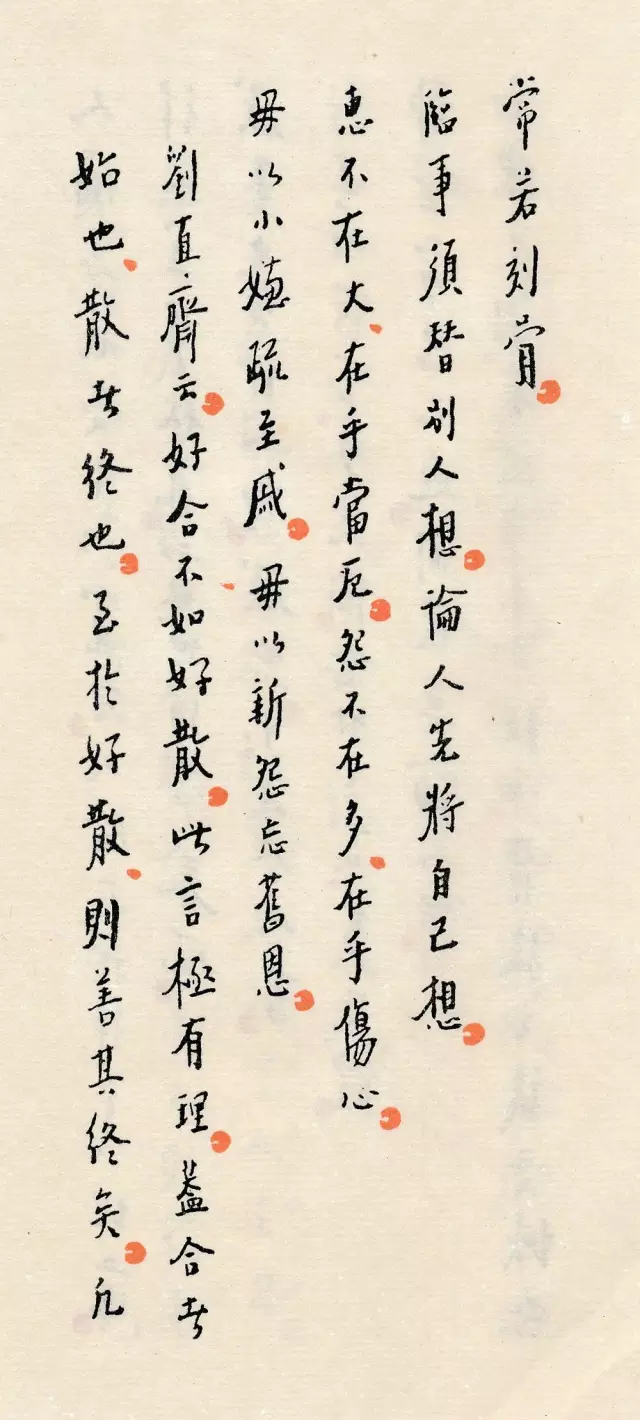 常若刻膏
臨事須替別人想論人先將自己想
惠不在大在乎當厄怨不在多在乎傷心
毋以小嫌疏至戚毋以新怨忘舊恩
劉直齋云好合不如好散此言極有理蓋合者
始也散者終也至於好散則善其終矣凡